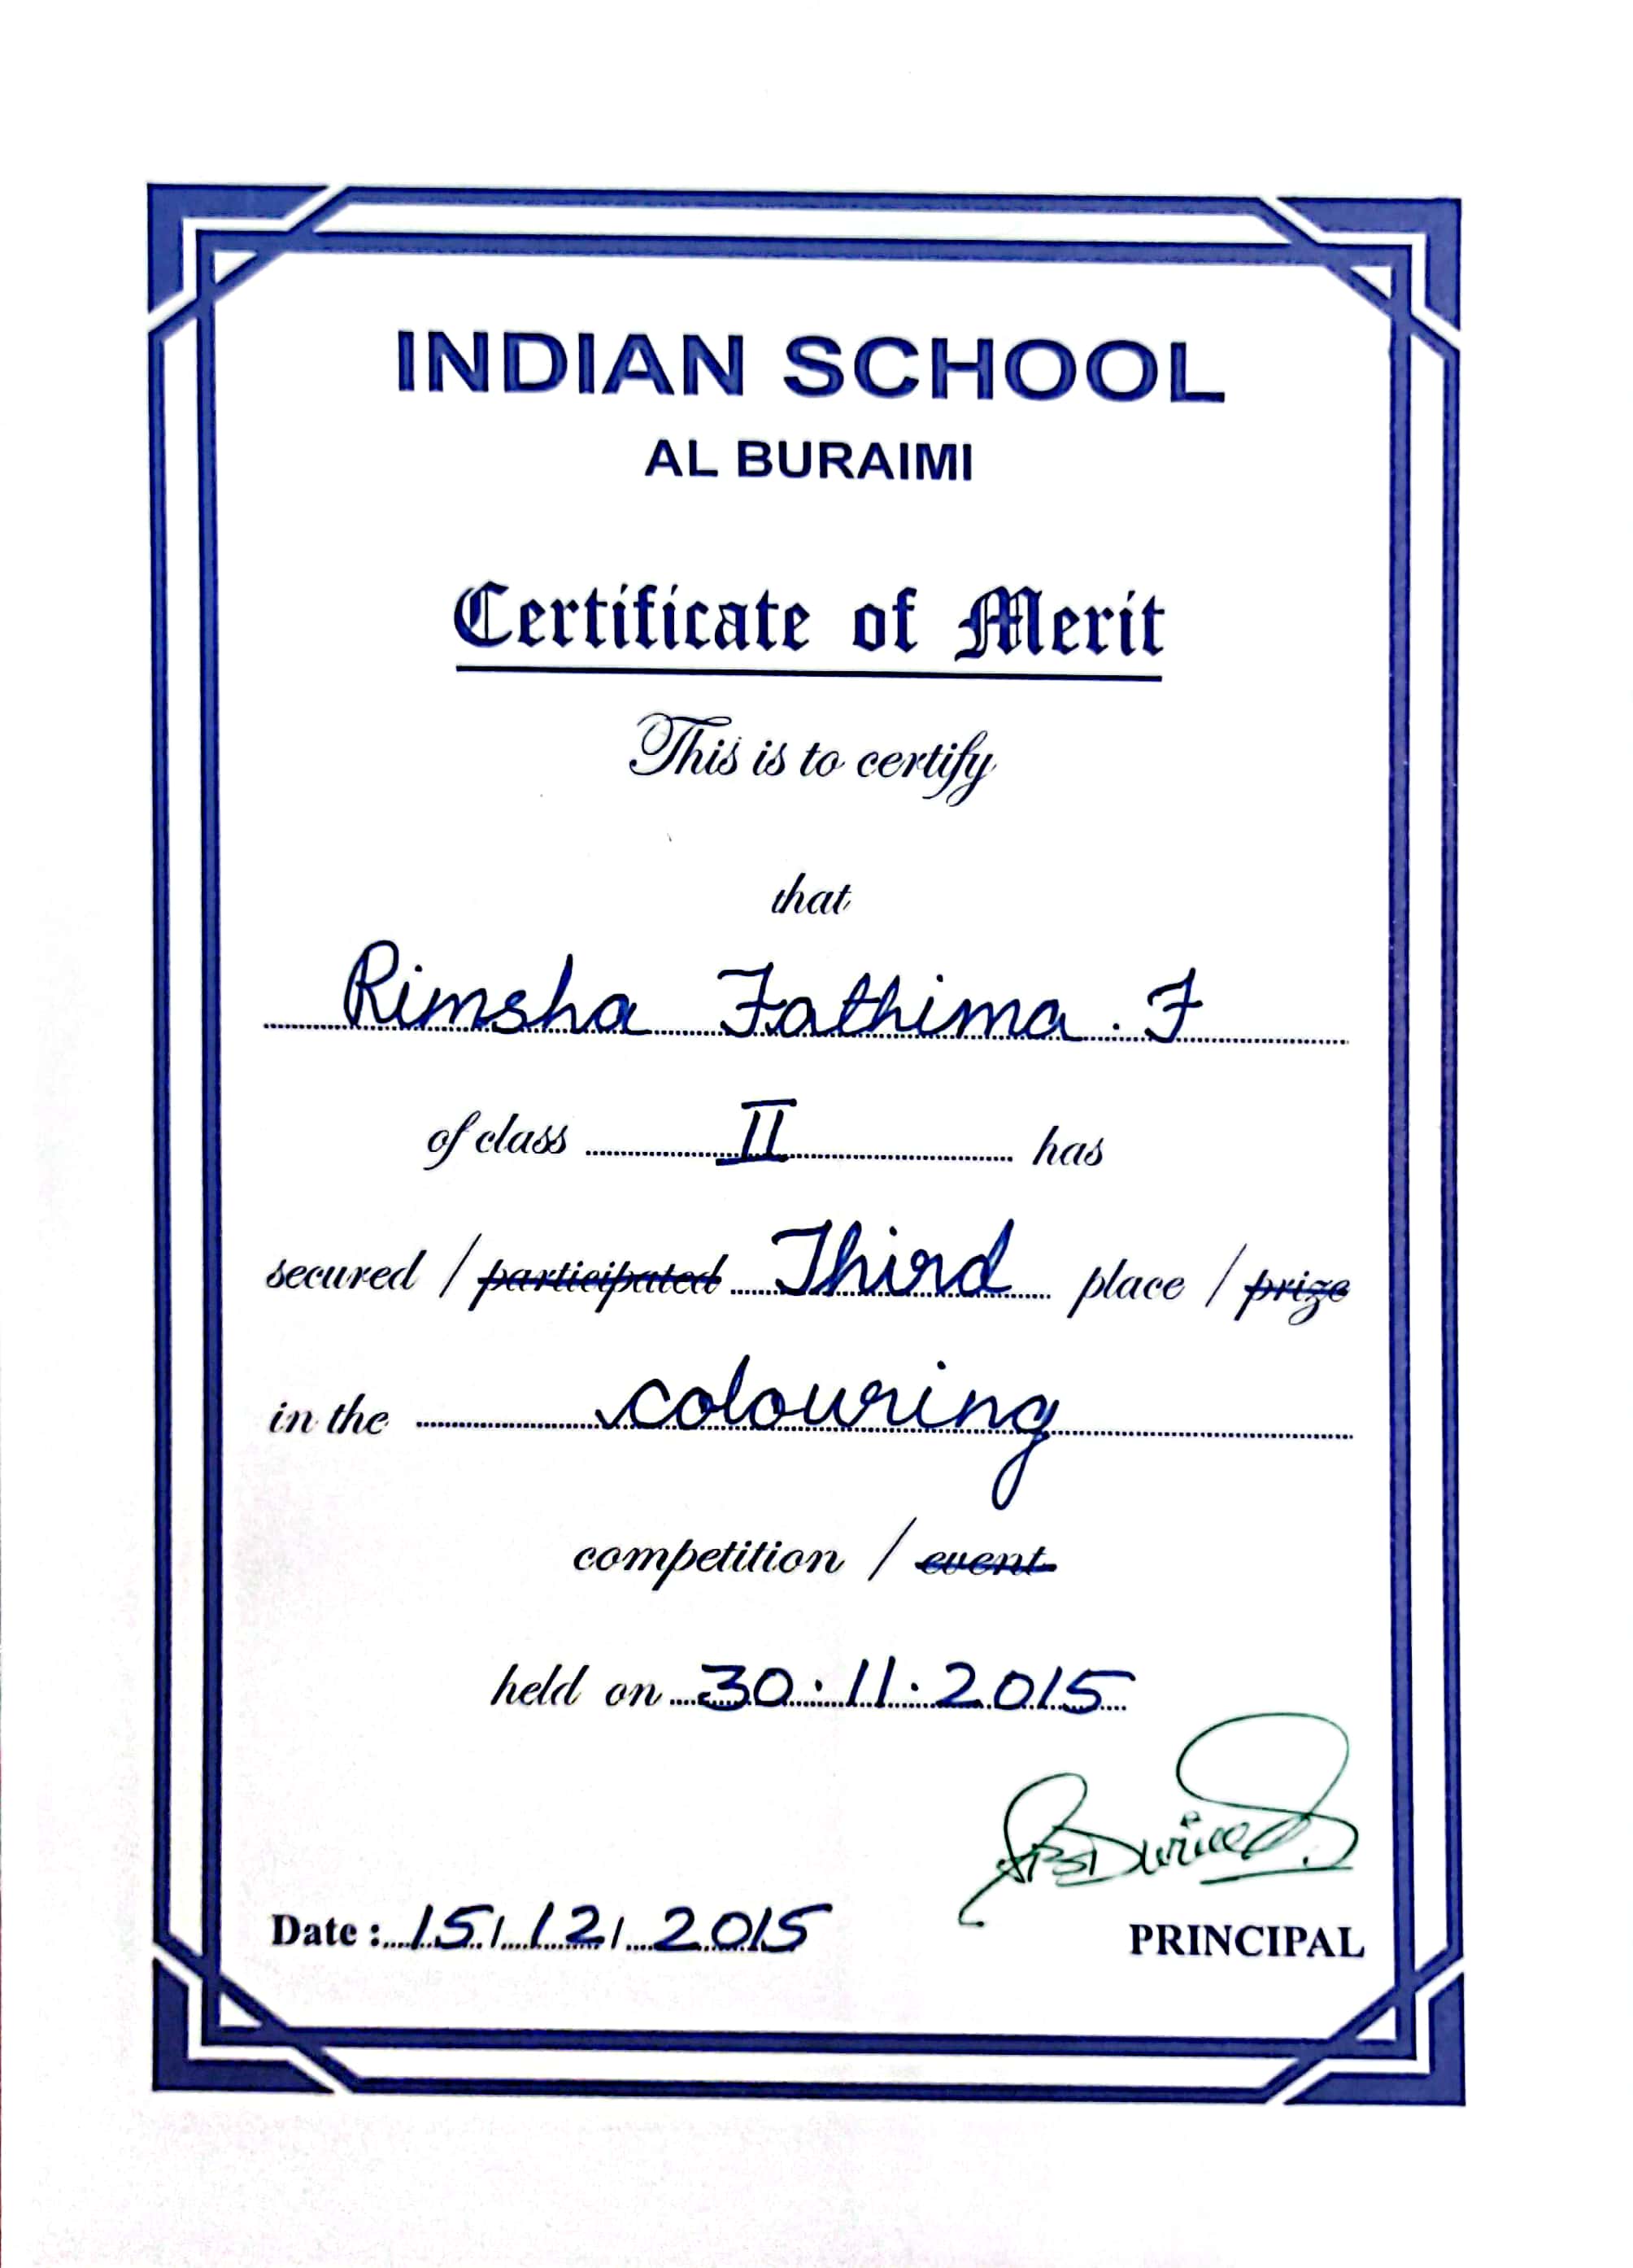 INDIAN SCHOOL
AL BURAIMI
Certificate of Merit
This is to certify
that
Rimsha Fathima. F
of class II has
secured / participated Third place / prize
in the colouring
competition / event
held on 30.11.2015
Date : 15/12/2015
PRINCIPAL